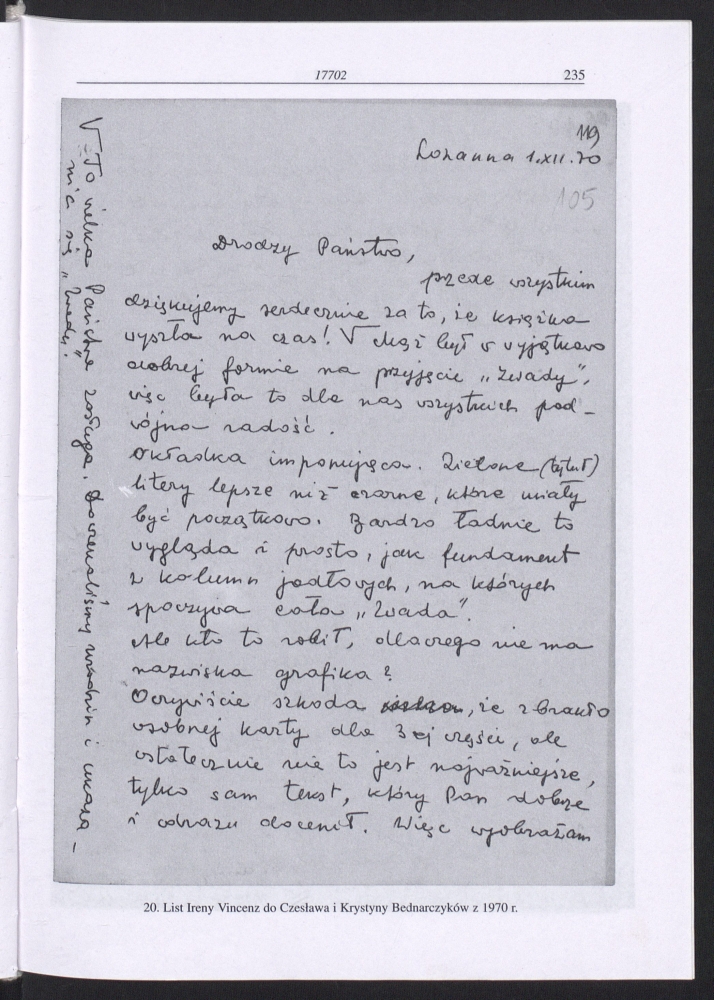 17702
235
119
Lozanna 1.XII.70
105
Drodzy Państwo,
przede wszystkim
dziękujemy serdecznie za to, że książka
wyszła na czas! V Mąż był w wyjątkowo
dobrej formie na przyjęcie „Zwady”,
więc była to dla nas wszystkich pod-
wójna radość.
Okładka imponująca. Zielone (tytuł)
litery lepsze niż czarne, które miały
być początkowo. Bardzo ładnie to
wygląda i prosto, jak fundament
z kolumn jodłowych, na których
spoczywa cała „Zwada”.
Ale kto to robił, dlaczego nie ma
nazwiska grafika?
Oczywiście szkoda, że zbrakło
osobnej karty dla 3ej części, ale
ostatecznie nie to jest najważniejsze,
tylko sam tekst, który Pan dobrze
i odrazu docenił. Więc wyobrażam
V To wielka Państwa zasługa. Doczekaliśmy urodzin i ukaza-
nia się „Zwady”.
20. List Ireny Vincenz do Czesława i Krystyny Bednarczyków z 1970 r.